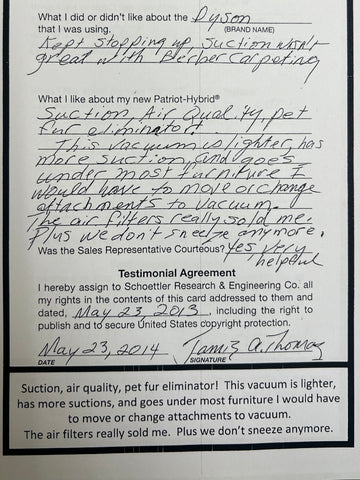 What I did or didn't like about the Dyson
that I was using. (BRAND NAME)
Kept stopping up, suction wasn't
great with Berber Carpeting
What I like about my new Patriot-Hybrid®
Suction, Air Quality, pet
fur eliminator!
This vacuum is lighter, has
more suction, and goes
under most furniture I
would have to move or change
attachments to vacuum.
The air filters really sold me.
Plus we don't sneeze anymore.
Was the Sales Representative Courteous? Yes very
helpful
Testimonial Agreement
I hereby assign to Schoettler Research & Engineering Co. all
my rights in the contents of this card addressed to them and
dated, May 23, 2013, including the right to
publish and to secure United States copyright protection.
May 23, 2014 A. Thomas
DATE SIGNATURE
Suction, air quality, pet fur eliminator! This vacuum is lighter,
has more suctions, and goes under most furniture I would have
to move or change attachments to vacuum.
The air filters really sold me. Plus we don't sneeze anymore.